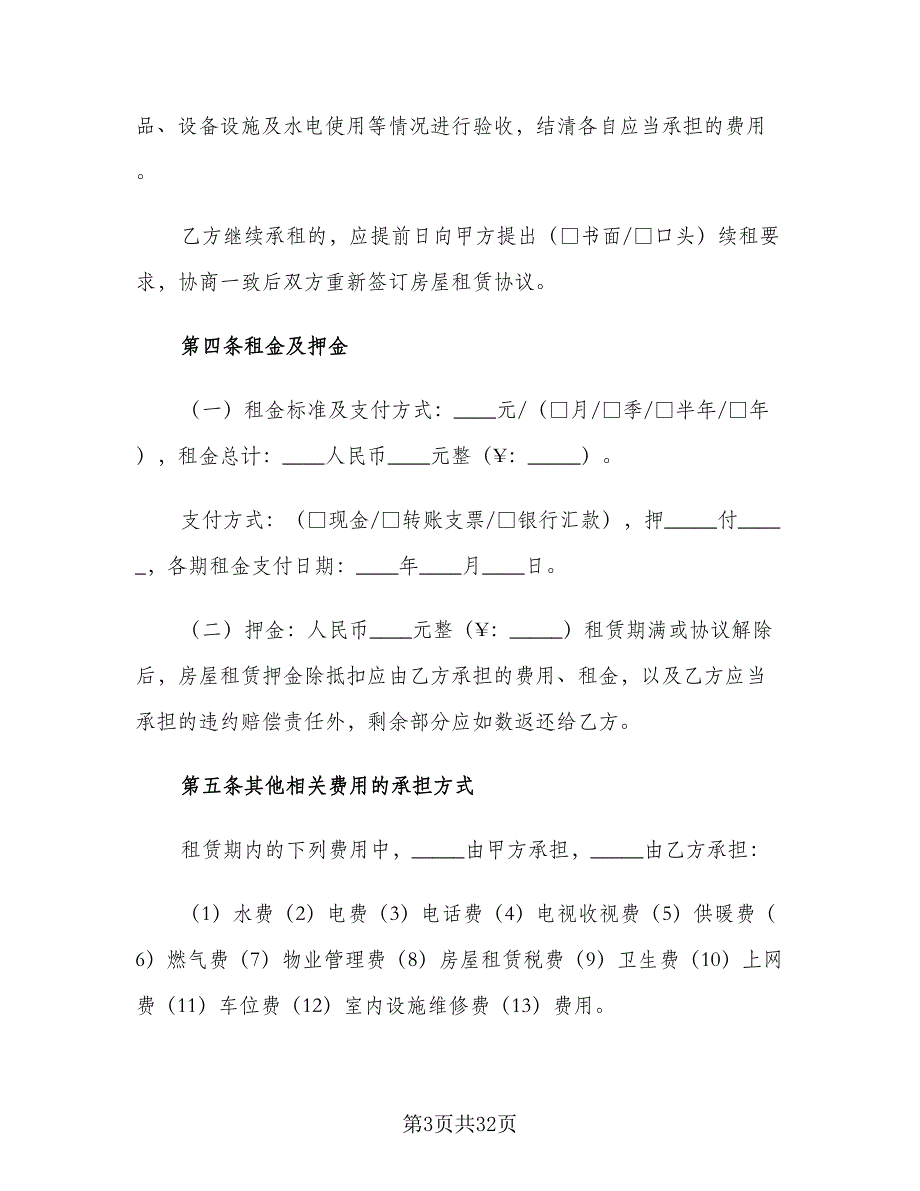 品、设备设施及水电使用等情况进行验收，结清各自应当承担的费用
。
乙方继续承租的，应提前日向甲方提出（□书面/□口头）续租要
求，协商一致后双方重新签订房屋租赁协议。
第四条租金及押金
（一）租金标准及支付方式：____元/（□月/□季/□半年/□年
），租金总计：____人民币____元整（¥：_____）。
支付方式：（□现金/□转账支票/□银行汇款），押_____付____
_，各期租金支付日期：____年____月____日。
（二）押金：人民币____元整（¥：_____）租赁期满或协议解除
后，房屋租赁押金除抵扣应由乙方承担的费用、租金，以及乙方应当
承担的违约赔偿责任外，剩余部分应如数返还给乙方。
第五条其他相关费用的承担方式
租赁期内的下列费用中，_____由甲方承担，_____由乙方承担：
（1）水费（2）电费（3）电话费（4）电视收视费（5）供暖费（
6）燃气费（7）物业管理费（8）房屋租赁税费（9）卫生费（10）上网
费（11）车位费（12）室内设施维修费（13）费用。
第3页共32页